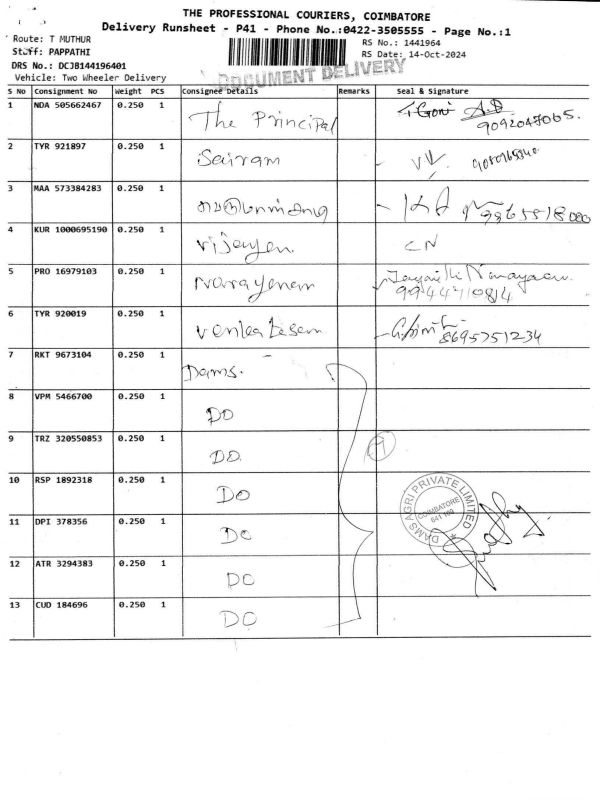 THE PROFESSIONAL COURIERS, COIMBATORE
Delivery Runsheet - P41 - Phone No.:0422-3505555 - Page No.:1
Route: T MUTHUR
RS No.: 1441964
Staff: PAPPATHI
RS Date: 14-Oct-2024
DRS No.: DCJB144196401
DOCUMENT DELIVERY
Vehicle: Two Wheeler Delivery
S No Consignment No Weight PCS Consignee Details Remarks Seal & Signature
1 NDA 505662467 0.250 1 The Principal
2 TYR 921897 0.250 1 Sairam
3 MAA 573384283 0.250 1
4 KUR 1000695190 0.250 1 Vijayen. CN
5 PRO 16979103 0.250 1 Narayanan
9944210814
6 TYR 920019 0.250 1 Venkatesan
8695751234
7 RKT 9673104 0.250 1 Dams.
8 VPM 5466700 0.250 1 DO
9 TRZ 320550853 0.250 1 DO 7
10 RSP 1892318 0.250 1 DO
11 DPI 378356 0.250 1 DO
12 ATR 3294383 0.250 1 DO
13 CUD 184696 0.250 1 DO
DAMS AGRI PRIVATE LIMITED
COIMBATORE
641 109